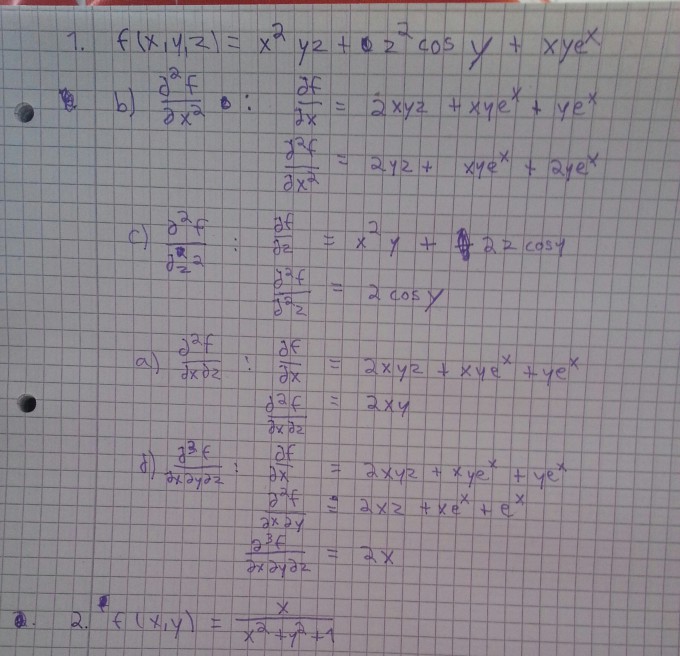 1. f(x,y,z) = x² yz + z² cos y + xye^x
b) ∂²f/∂x² : ∂f/∂x = 2xyz + xye^x + ye^x
∂²f/∂x² = 2yz + xye^x + 2ye^x
c) ∂²f/∂z² : ∂f/∂z = x² y + 2z cosy
∂²f/∂²z = 2 cosy
a) ∂²f/∂x∂z : ∂f/∂x = 2xyz + xye^x + ye^x
∂²f/∂x∂z = 2xy
∂³f/∂x∂y∂z : ∂f/∂x = 2xyz + xye^x + ye^x
∂²f/∂x∂y = 2xz + xe^x + e^x
∂³f/∂x∂y∂z = 2x
2. f(x,y) = x/(x²+y²+1)